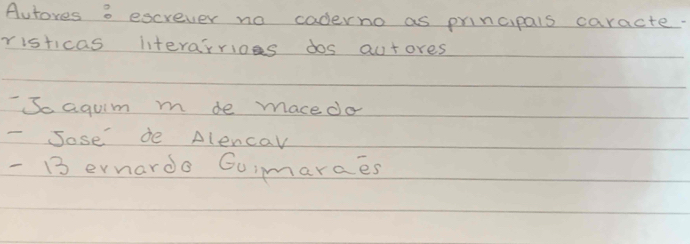 Autores : escrever no caderno as principais caracte-
risticas literárrias dos autores
- Joaquim m de macedo
- José de Alencar
- Bernardo Guimaraẽs